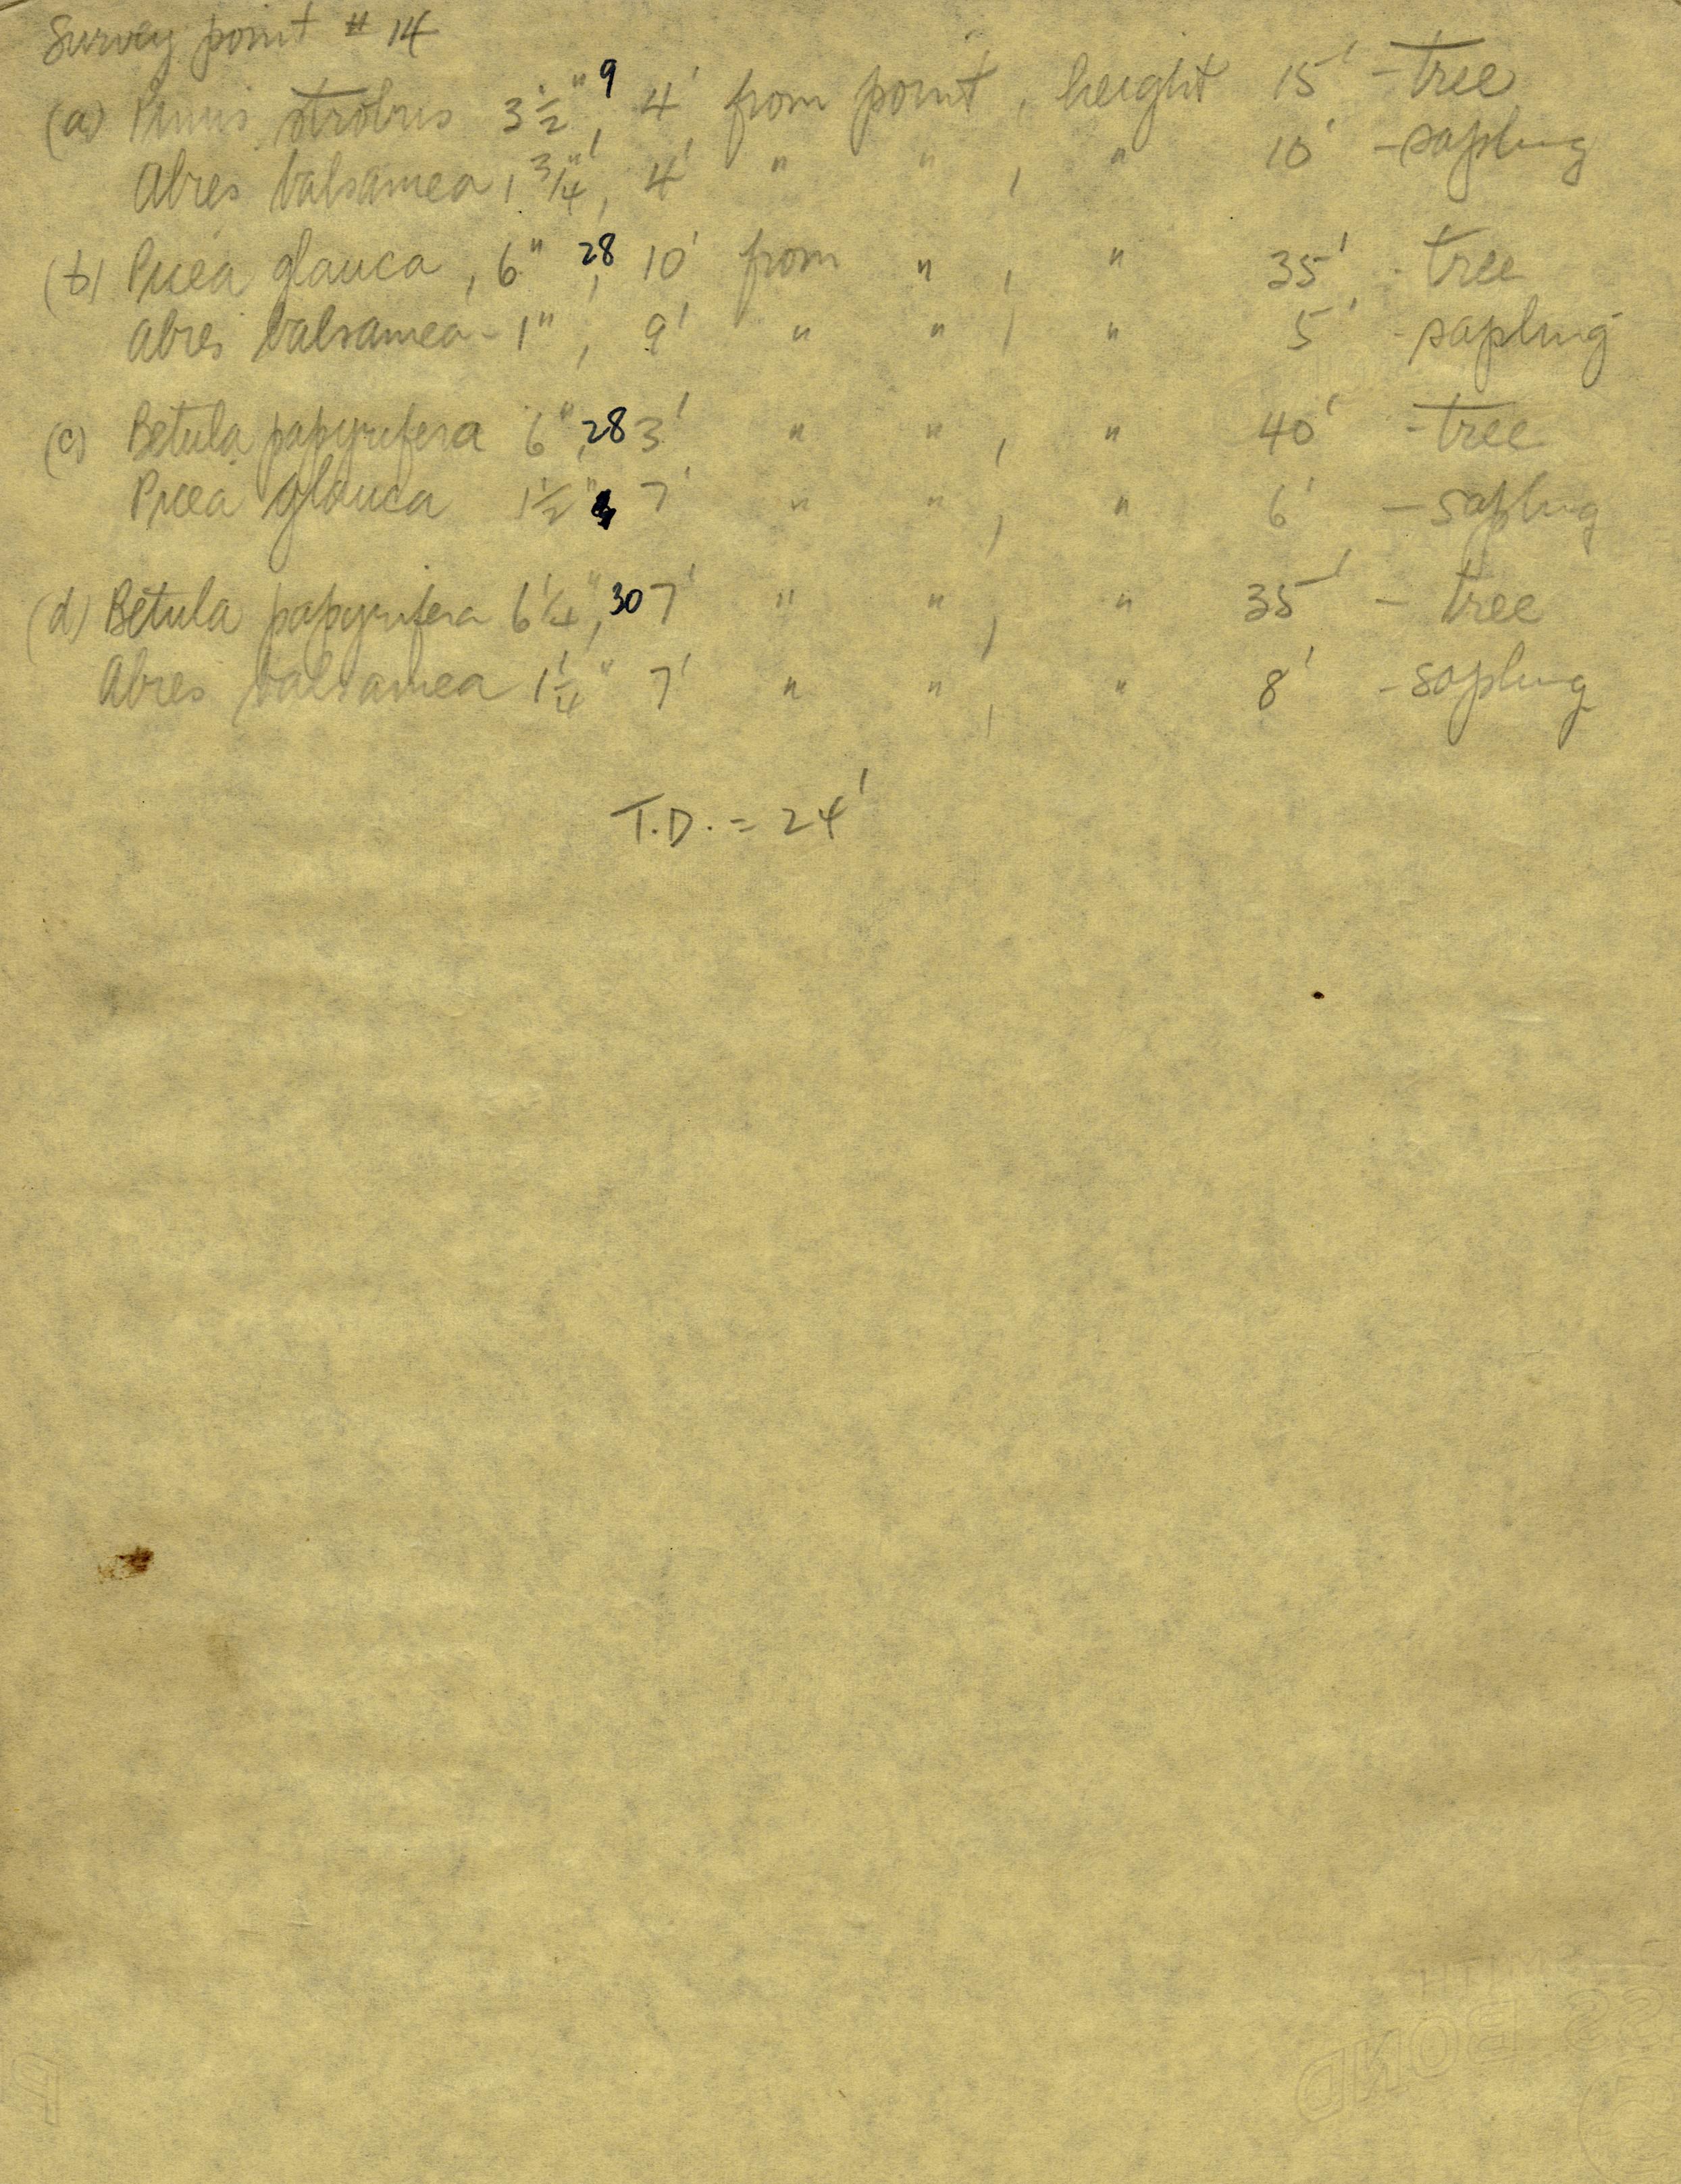 Survey point # 14
(a) Pinus strobus 3 1/2", 9 4' from point, height 15' - tree
Abies balsamea 1 3/4", 4' " " , " 10' - sapling
(b) Picea glauca, 6", 28 10' from " , " 35' - tree
Abies balsamea - 1", 9' " " , " 5' - sapling
(c) Betula papyrifera 6", 28 3' " " , " 40' - tree
Picea glauca 1 1/2" 7' " " , " 6' - sapling
(d) Betula papyrifera 6 1/4", 30 7' " " , " 35' - tree
Abies balsamea 1 1/4" 7' " " , " 8' - sapling
T.D. = 24'
BOND